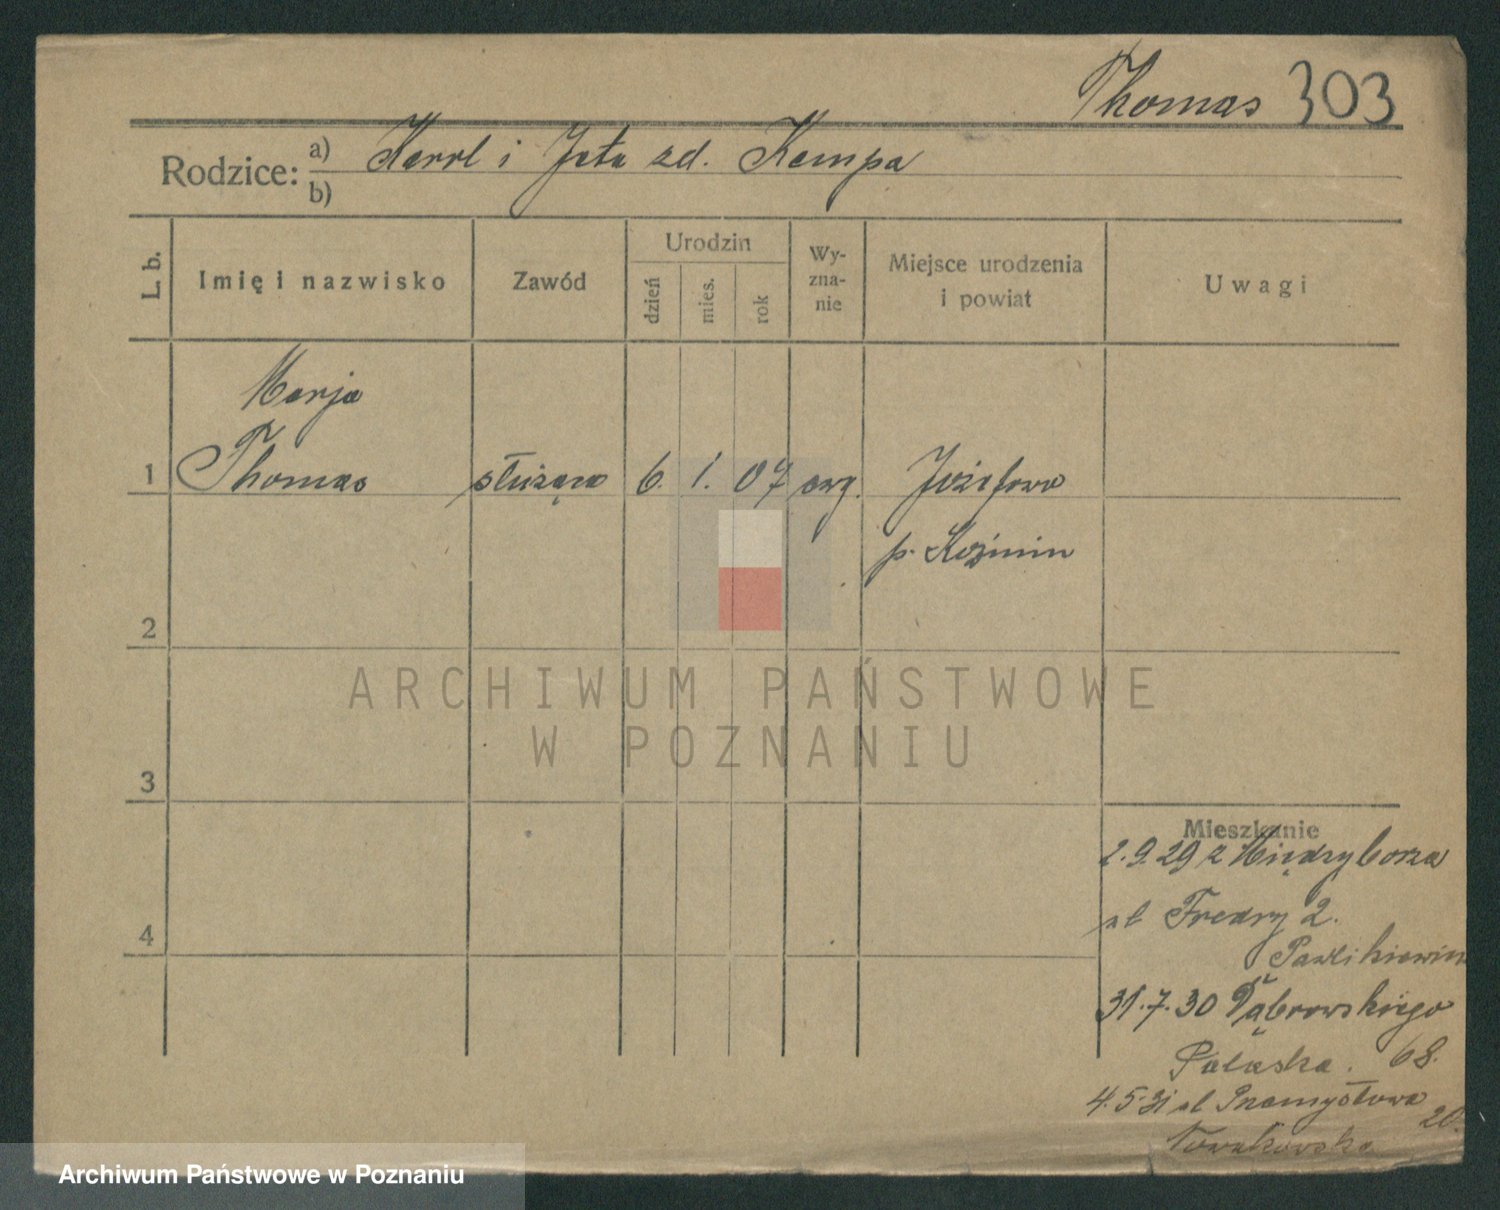 Thomas 303
Rodzice: a) Karol i Jeta zd. Kempa
b)
L. b.
Imię i nazwisko
Zawód
Urodzin
dzień
mies.
rok
Wy-
zna-
nie
Miejsce urodzenia
i powiat
Uwagi
Marja
1 Thomas służąca 6. 1. 07 ewg. Józefowo
p. Koźmin
2
3
4
Mieszkanie
2.9.29 z Międzyborza
ul Fredry 2.
31.7.30 Dąbrowskiego
68.
4.5.31 ul Przemysłowa
20.
Nowakowska
ARCHIWUM PAŃSTWOWE
W POZNANIU
Archiwum Państwowe w Poznaniu